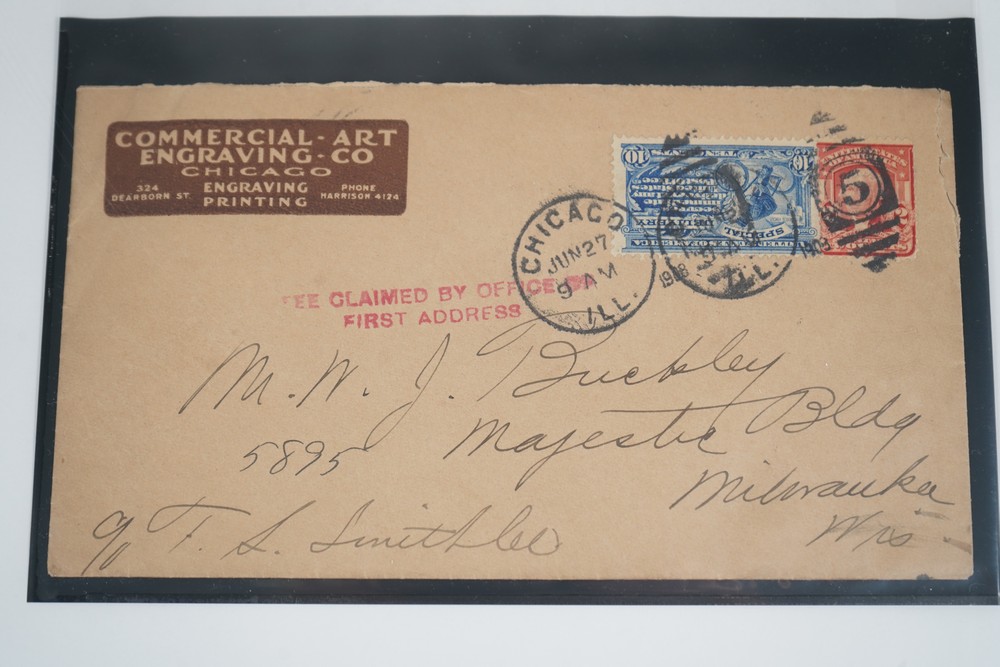 COMMERCIAL-ART
ENGRAVING-CO
CHICAGO
324
DEARBORN ST.
ENGRAVING
PRINTING
PHONE
HARRISON 4124
10
10
SPECIAL
DELIVERY
UNITED STATES OF AMERICA
CHICAGO
JUN 27
9 AM
ILL.
ILL.
5
FEE CLAIMED BY OFFICE OF
FIRST ADDRESS
M. W. J. Buckley
5895 Majestic Bldg
Milwaukee
Wis
c/o T. S. Smithlee